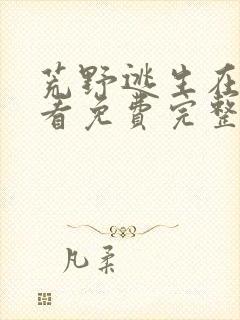 荒野逃生在
看免费完整
凡柔